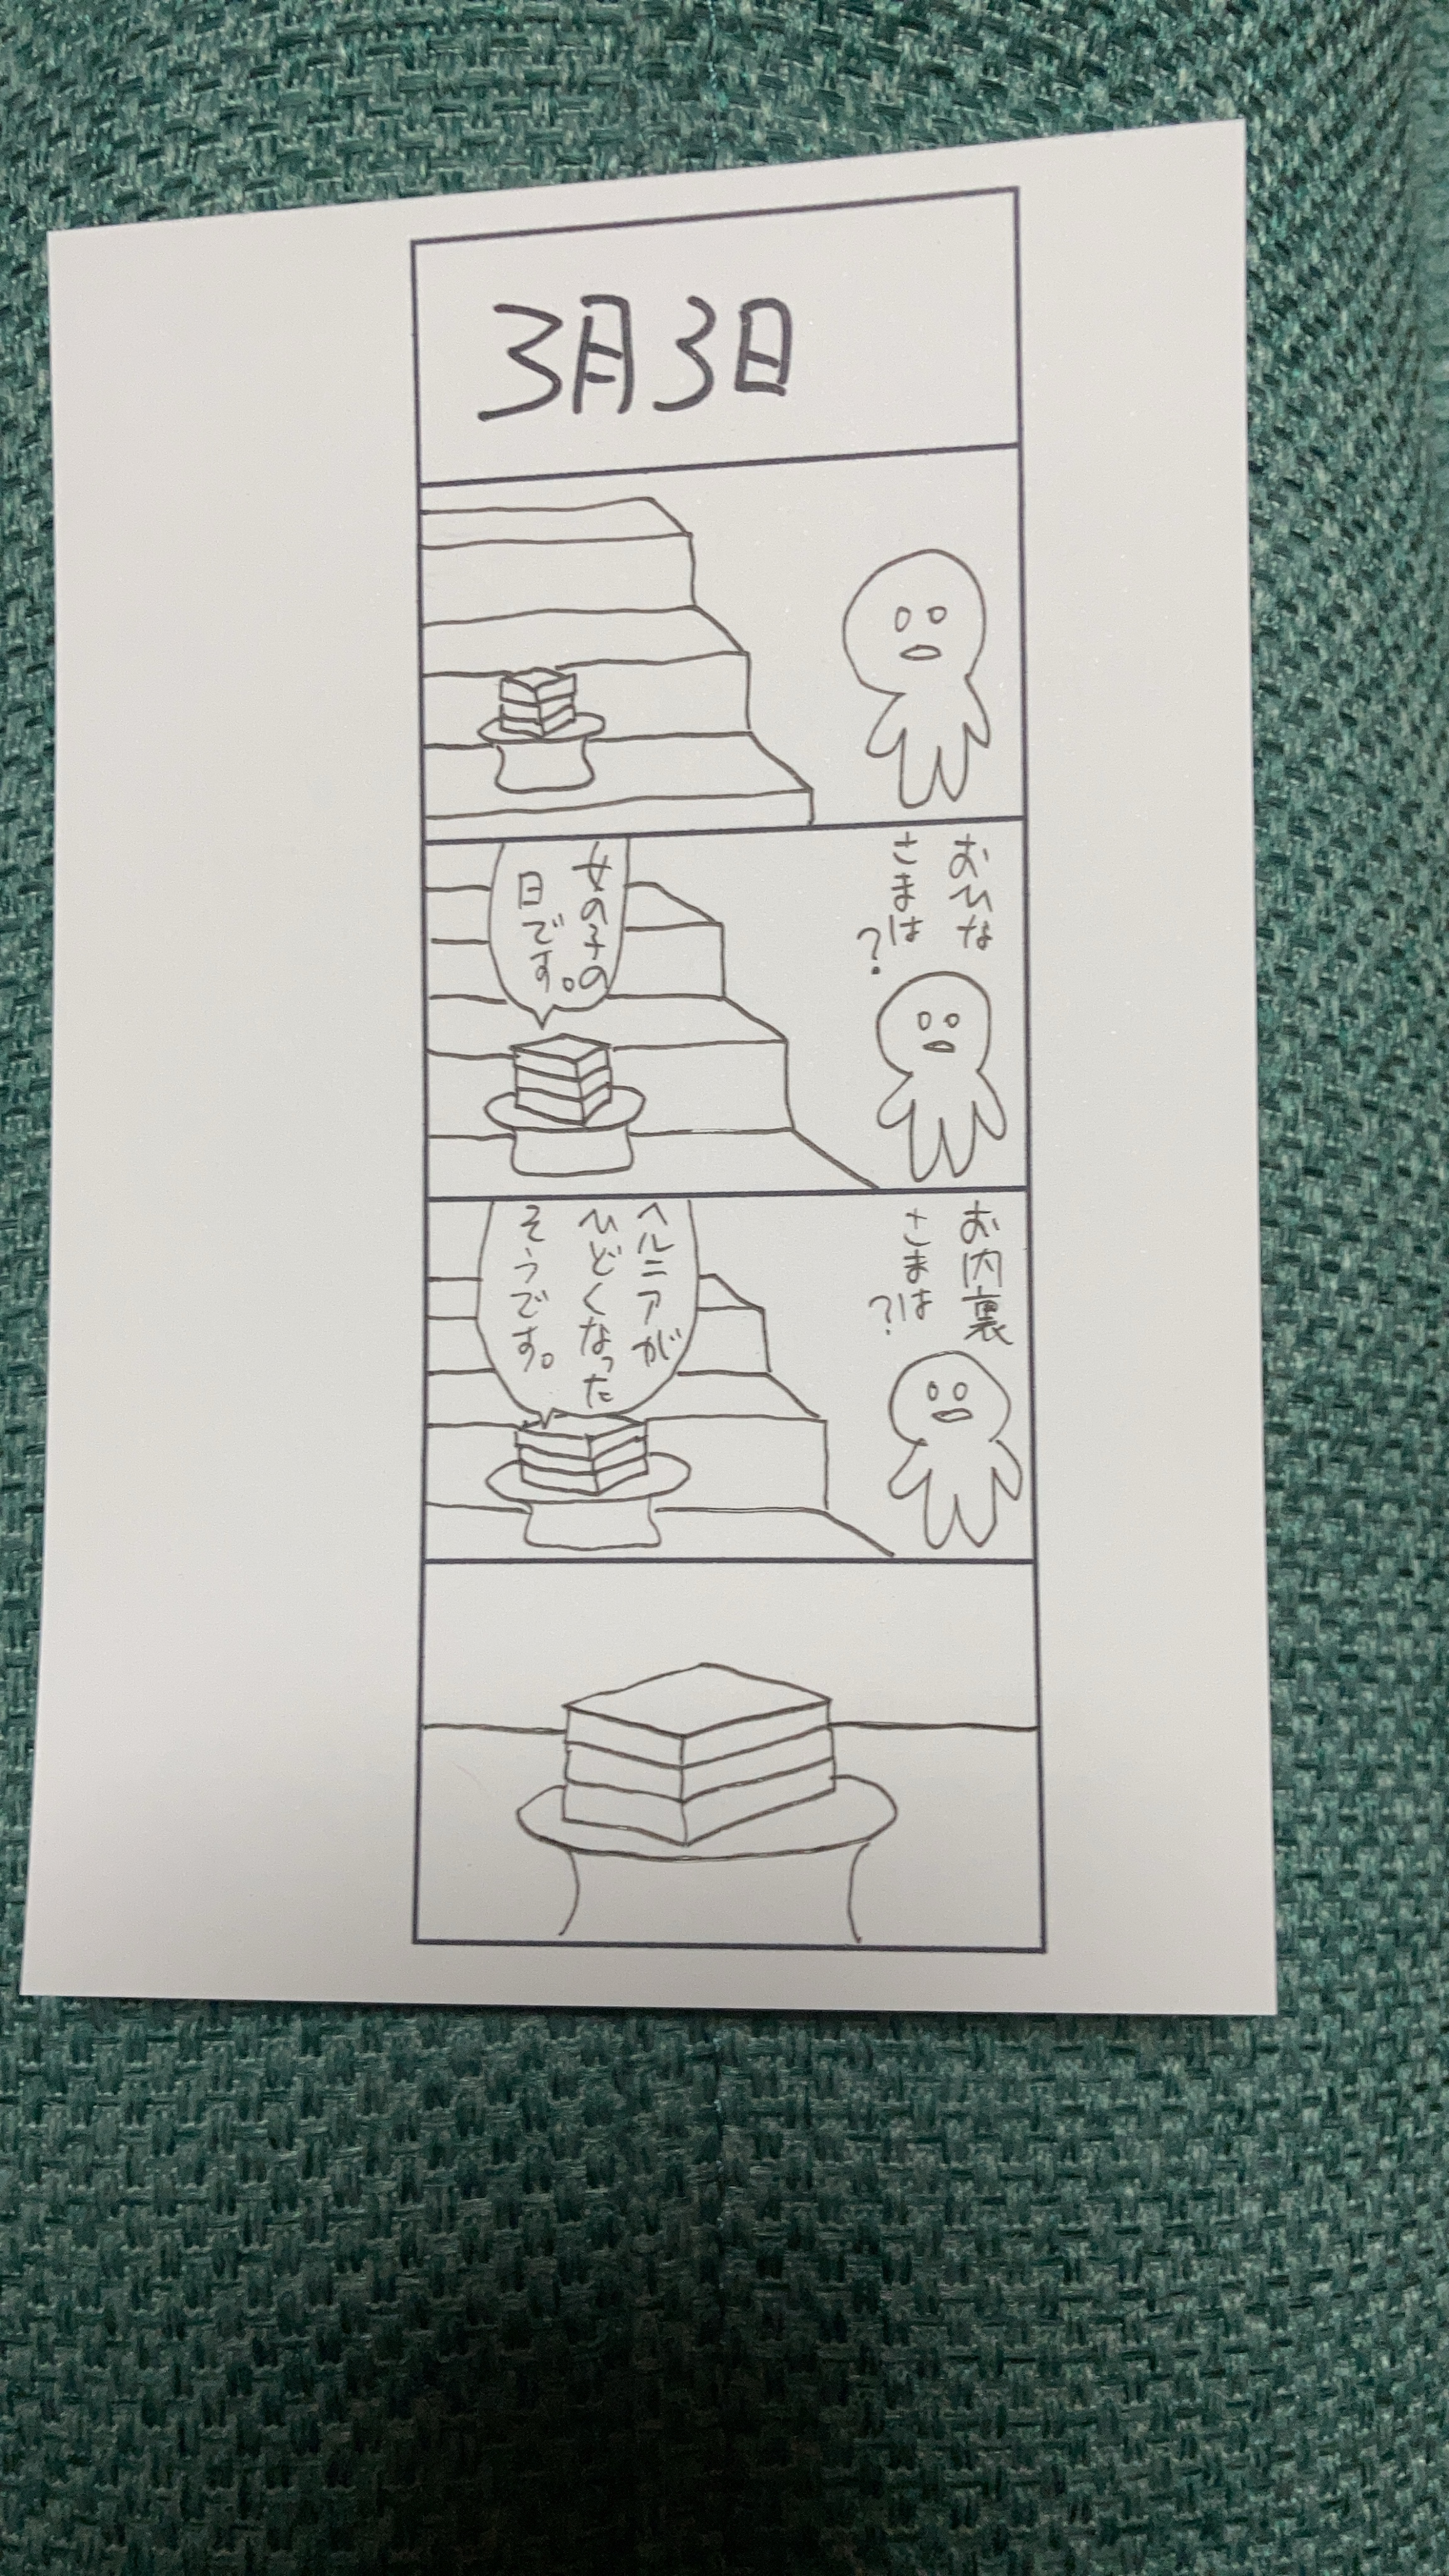 3月3日
おひな
さまは
?
女の子の
日です。
お内裏
さまは
?
ヘルニアが
ひどくなった
そうです。